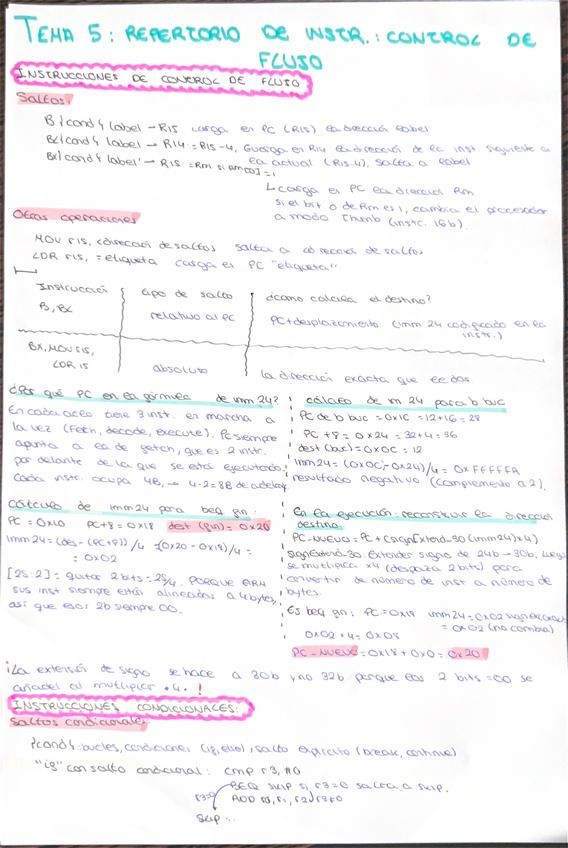 TEMA 5: REPERTORIO DE INSTR.: CONTROL DE
FLUJO
INSTRUCCIONES DE CONTROL DE FLUJO
Saltos:
B{cond} label → R15 carga en PC (R15) la dirección label
BL{cond} label → R14 = R15-4, Guarda en R14 la dirección de la inst siguiente a
la actual (R15-4), salta a label
BX{cond} label → R15 = Rm si Rm[0]=1
↳ carga en PC la dirección Rm
si el bit 0 de Rm es 1, cambia el procesador
a modo Thumb (instr. 16b).
Otras operaciones
MOV r15, <dirección de salto> salta a dirección de salto
LDR r15, =etiqueta carga en PC "etiqueta"
Instrucción tipo de salto ¿cómo calcula el destino?
B, BL relativo al PC PC+desplazamiento (imm 24 codificado en la
instr.)
BX, MOV r15,
LDR r15 absoluto la dirección exacta que le das
¿Por qué PC en la fórmula de imm24?
En cada ciclo tiene 3 inst. en marcha a
la vez (Fetch, decode, execute). PC siempre
apunta a la de fetch, que es 2 instr.
por delante de la que se está ejecutando.
Cada instr. ocupa 4B, → 4·2=8B de adelanto
cálculo de m 24 para b buc
PC de b buc = 0x1C = 12+16 = 28
PC +8 = 0x24 = 32+4 = 36
dest (buc) = 0x0C = 12
imm24 = (0x0C - 0x24)/4 = 0xFFFFFA
resultado negativo (complemento a 2).
Cálculo de imm24 para beq fin:
PC = 0x10 PC+8 = 0x18 dest (fin) = 0x20
imm24 = (des - (PC+8))/4 = (0x20 - 0x18)/4 =
= 0x02
[25:2] = quitar 2 bits = 25/4. PORQUE ARM
sus inst siempre están alineadas a 4 bytes,
así que esos 2b siempre 00.
En la ejecución: reconstruir la dirección
destino
PC-NUEVO = PC + (signExtend-30(imm24)x4)
SignExtend-30: Extender signo de 24b → 30b, luego
se multiplica x4 (desplaza 2 bits) para
convertir de número de inst a número de
bytes.
Es beq fin: PC = 0x18 imm24 = 0x02
= 0x02 (no cambia)
0x02 · 4 = 0x08
PC-NUEVO = 0x18 + 0x0 = 0x20
¡La extensión de signo se hace a 30b y no 32b porque los 2 bits = 00 se
añaden al multiplicar ·4. !
INSTRUCCIONES CONDICIONALES:
Saltos condicionales
{cond}: bucles, condiciones (if, else), salto explícito (break, continue)
"if" con salto condicional: cmp r3, #0
BEQ skip si r3=0 salta a skip.
r3=0 ADD r0, r1, r2 r3≠0
skip ...